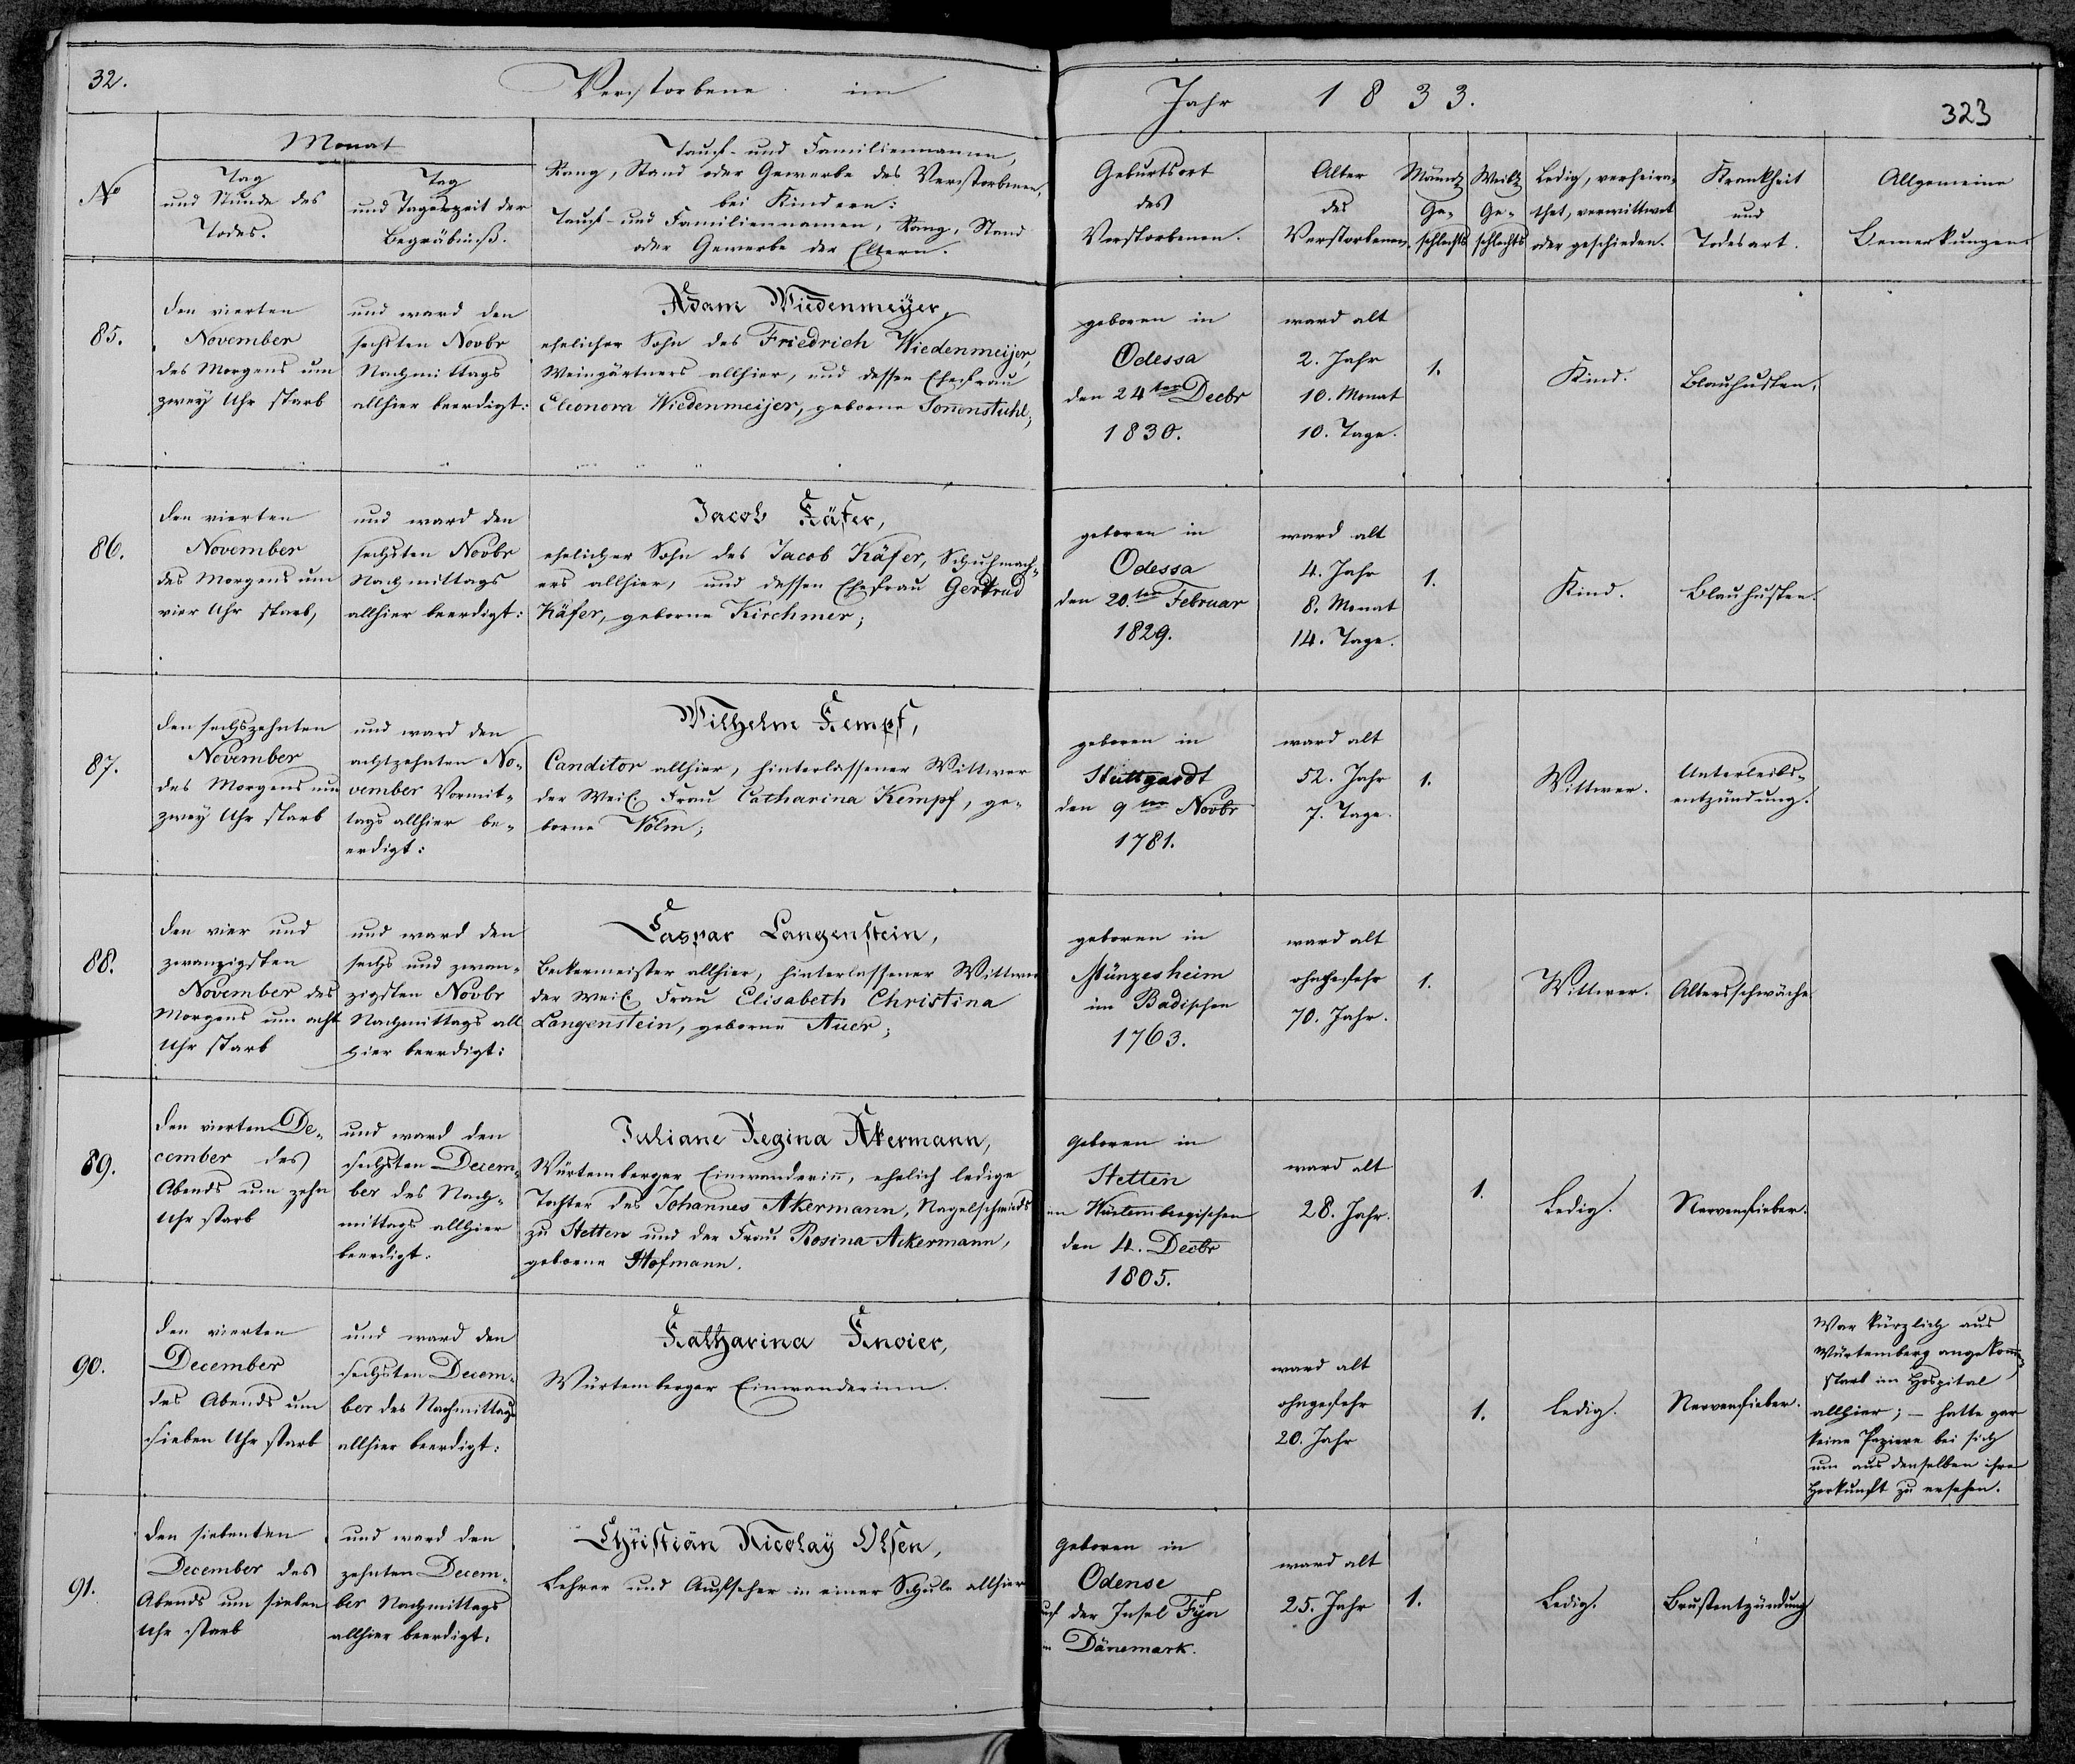 32.
Verstorbene im
Jahr 1833.
323
No
Monat
Tag
und Stunde des
Todes.
Tag
und Tageszeit der
Begräbniß.
Tauf- und Familiennamen,
Rang, Stand oder Gewerbe des Verstorbenen,
bei Kindern:
Tauf- und Familiennamen, Rang, Stand
oder Gewerbe der Eltern.
Geburtsort
des
Verstorbenen.
Alter
des
Verstorbenen.
Männl.
Ge-
schlechts
Weibl.
Ge-
schlechts
Ledig, verheira-
thet, verwittwet
oder geschieden.
Krankheit
und
Todesart.
Allgemeine
Bemerkungen.
85.
den vierten
November
des Morgens um
zwey Uhr starb
und ward den
sechsten Novbr
Nachmittags
allhier beerdigt:
Adam Wiedenmeijer,
ehelicher Sohn des Friedrich Wiedenmeijer,
Weingärtners allhier, und dessen Ehefrau
Eleonora Wiedenmeijer, geborne Sonenstuhl;
geboren in
Odessa
den 24ten Decbr
1830.
ward alt
2. Jahr
10. Monat
10. Tage.
1.
Kind.
Blauhusten.
86.
den vierten
November
des Morgens um
vier Uhr starb,
und ward den
sechsten Novbr
Nachmittags
allhier beerdigt:
Jacob Käfer,
ehelicher Sohn des Jacob Käfer, Schuhmach-
ers allhier, und dessen Ehefrau Gertrud
Käfer, geborne Kirchmer;
geboren in
Odessa
den 20.ten Februar
1829.
ward alt
4. Jahr
8. Monat
14. Tage.
1.
Kind.
Blauhusten.
87.
den sechszehnten
November
des Morgens um
zwey Uhr starb
und ward den
achtzehnten No-
vember Vormit-
tags allhier be-
erdigt:
Wilhelm Kempf,
Canditor allhier, hinterlassener Wittwer
der Weil. Frau Catharina Kempf, ge-
borne Völm;
geboren in
Stuttgardt
den 9ten Novbr
1781.
ward alt
52. Jahr
7. Tage.
1.
Wittwer.
Unterleibs-
entzündung.
88.
den vier und
zwanzigsten
November des
Morgens um acht
Uhr starb
und ward den
sechs und zwan-
zigsten Novbr
Nachmittags all
hier beerdigt:
Caspar Langenstein,
Beckermeister allhier, hinterlassener Wittwer
der Weil. Frau Elisabeth Christina
Langenstein, geborne Auer;
geboren in
Münzesheim
im Badischen
1763.
ward alt
ohngefehr
70. Jahr.
1.
Wittwer.
Altersschwäche
89.
den vierten De-
cember des
Abends um zehn
Uhr starb
und ward den
sechsten Decem-
ber des Nach-
mittags allhier
beerdigt.
Juliane Regina Akermann,
Würtemberger Einwanderin, ehelich ledige
Tochter des Johannes Akermann, Nagelschmieds
zu Stetten und der Frau Rosina Ackermann,
geborne Hofmann.
geboren in
Stetten
im Würtembergischen
den 4. Decbr
1805.
ward alt
28. Jahr.
1.
Ledig.
Nervenfieber.
90.
den vierten
December
des Abends um
sieben Uhr starb
und ward den
sechsten Decem-
ber des Nachmittags
allhier beerdigt:
Katharina Knoier,
Würtemberger Einwanderinn.
—
ward alt
ohngefehr
20. Jahr
1.
ledig.
Nervenfieber.
War kürzlich aus
Würtemberg angekom,
starb im Hospital
allhier; – hatte gar
keine Papiere bei sich
um aus denselben ihre
Herkunft zu ersehen.
91.
den siebenten
December des
Abends um sieben
Uhr starb
und ward den
zehnten Decem-
ber Nachmittags
allhier beerdigt.
Christian Nicolaÿ Olsen,
Lehrer und Aufseher in einer Schule allhier
geboren in
Odense
auf der Insel Fÿn
in Dänemark.
ward alt
25. Jahr
1.
Ledig.
Brustentzündung